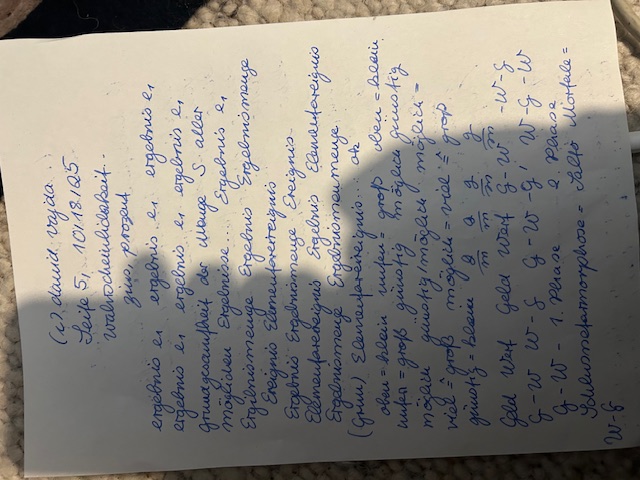 (c) david vajda
Seite 5, 10.12.25
Wahrscheinlichkeit
zins, prozent
ergebnis e1 ergebnis e1 ergebnis e1
ergebnis e1 ergebnis e1 ergebnis e1
grundgesamtheit der Menge S aller
möglichen Ergebnise... Ergebnis e1
Ergebnismenge Ergebnis Ergebnismenge
Ereignis Elementarereignis
Ergebnis Ergebnismenge Ereignis-
Elementarereignis Ergebnis Elementarereignis
Ergebnismenge Ergebnismenge
Elementarereignis... ok
oben = klein unten = groß oben = klein
unten = groß günstig möglich günstig
möglich günstig möglich möglich =
viel = groß möglich = viel = groß
günstig = klein g/m g/m g/m g/m
Geld Wert Geld Wert G-W-W-G
G-W W-G G-W-G' W-G-W
G-W- 1. Phase 2. Phase
W-G